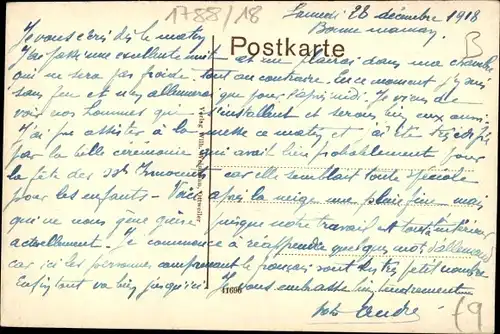 1788/18
Samedi 28 décembre 1918
Bonne maman,
B
Postkarte
Je vous écris dès le matin
J'ai passé une excellente nuit et me plairai dans ma chambre
qui ne sera pas froide, tout au contraire. En ce moment j'y suis
sans feu et n'en allumerai que pour l'après midi. Je viens de
voir nos hommes qui s'installent et seront bien eux aussi.
J'ai pu assister à la messe ce matin et ai été très édifié
par la belle cérémonie qui avait lieu probablement pour
la fête des Sts Innocents car elle semblait toute spéciale
pour les enfants. Voici après la neige une pluie fine mais
qui ne nous gêne guère puisque notre travail est tout intérieur
actuellement. Je commence à réapprendre quelques mots d'allemand
car ici les personnes comprenant le français sont en très petit nombre
Enfin tout va bien jusqu'ici. Je vous embrasse bien tendrement
votre André
Verlag Wilh. Ottweiler
11696
f9